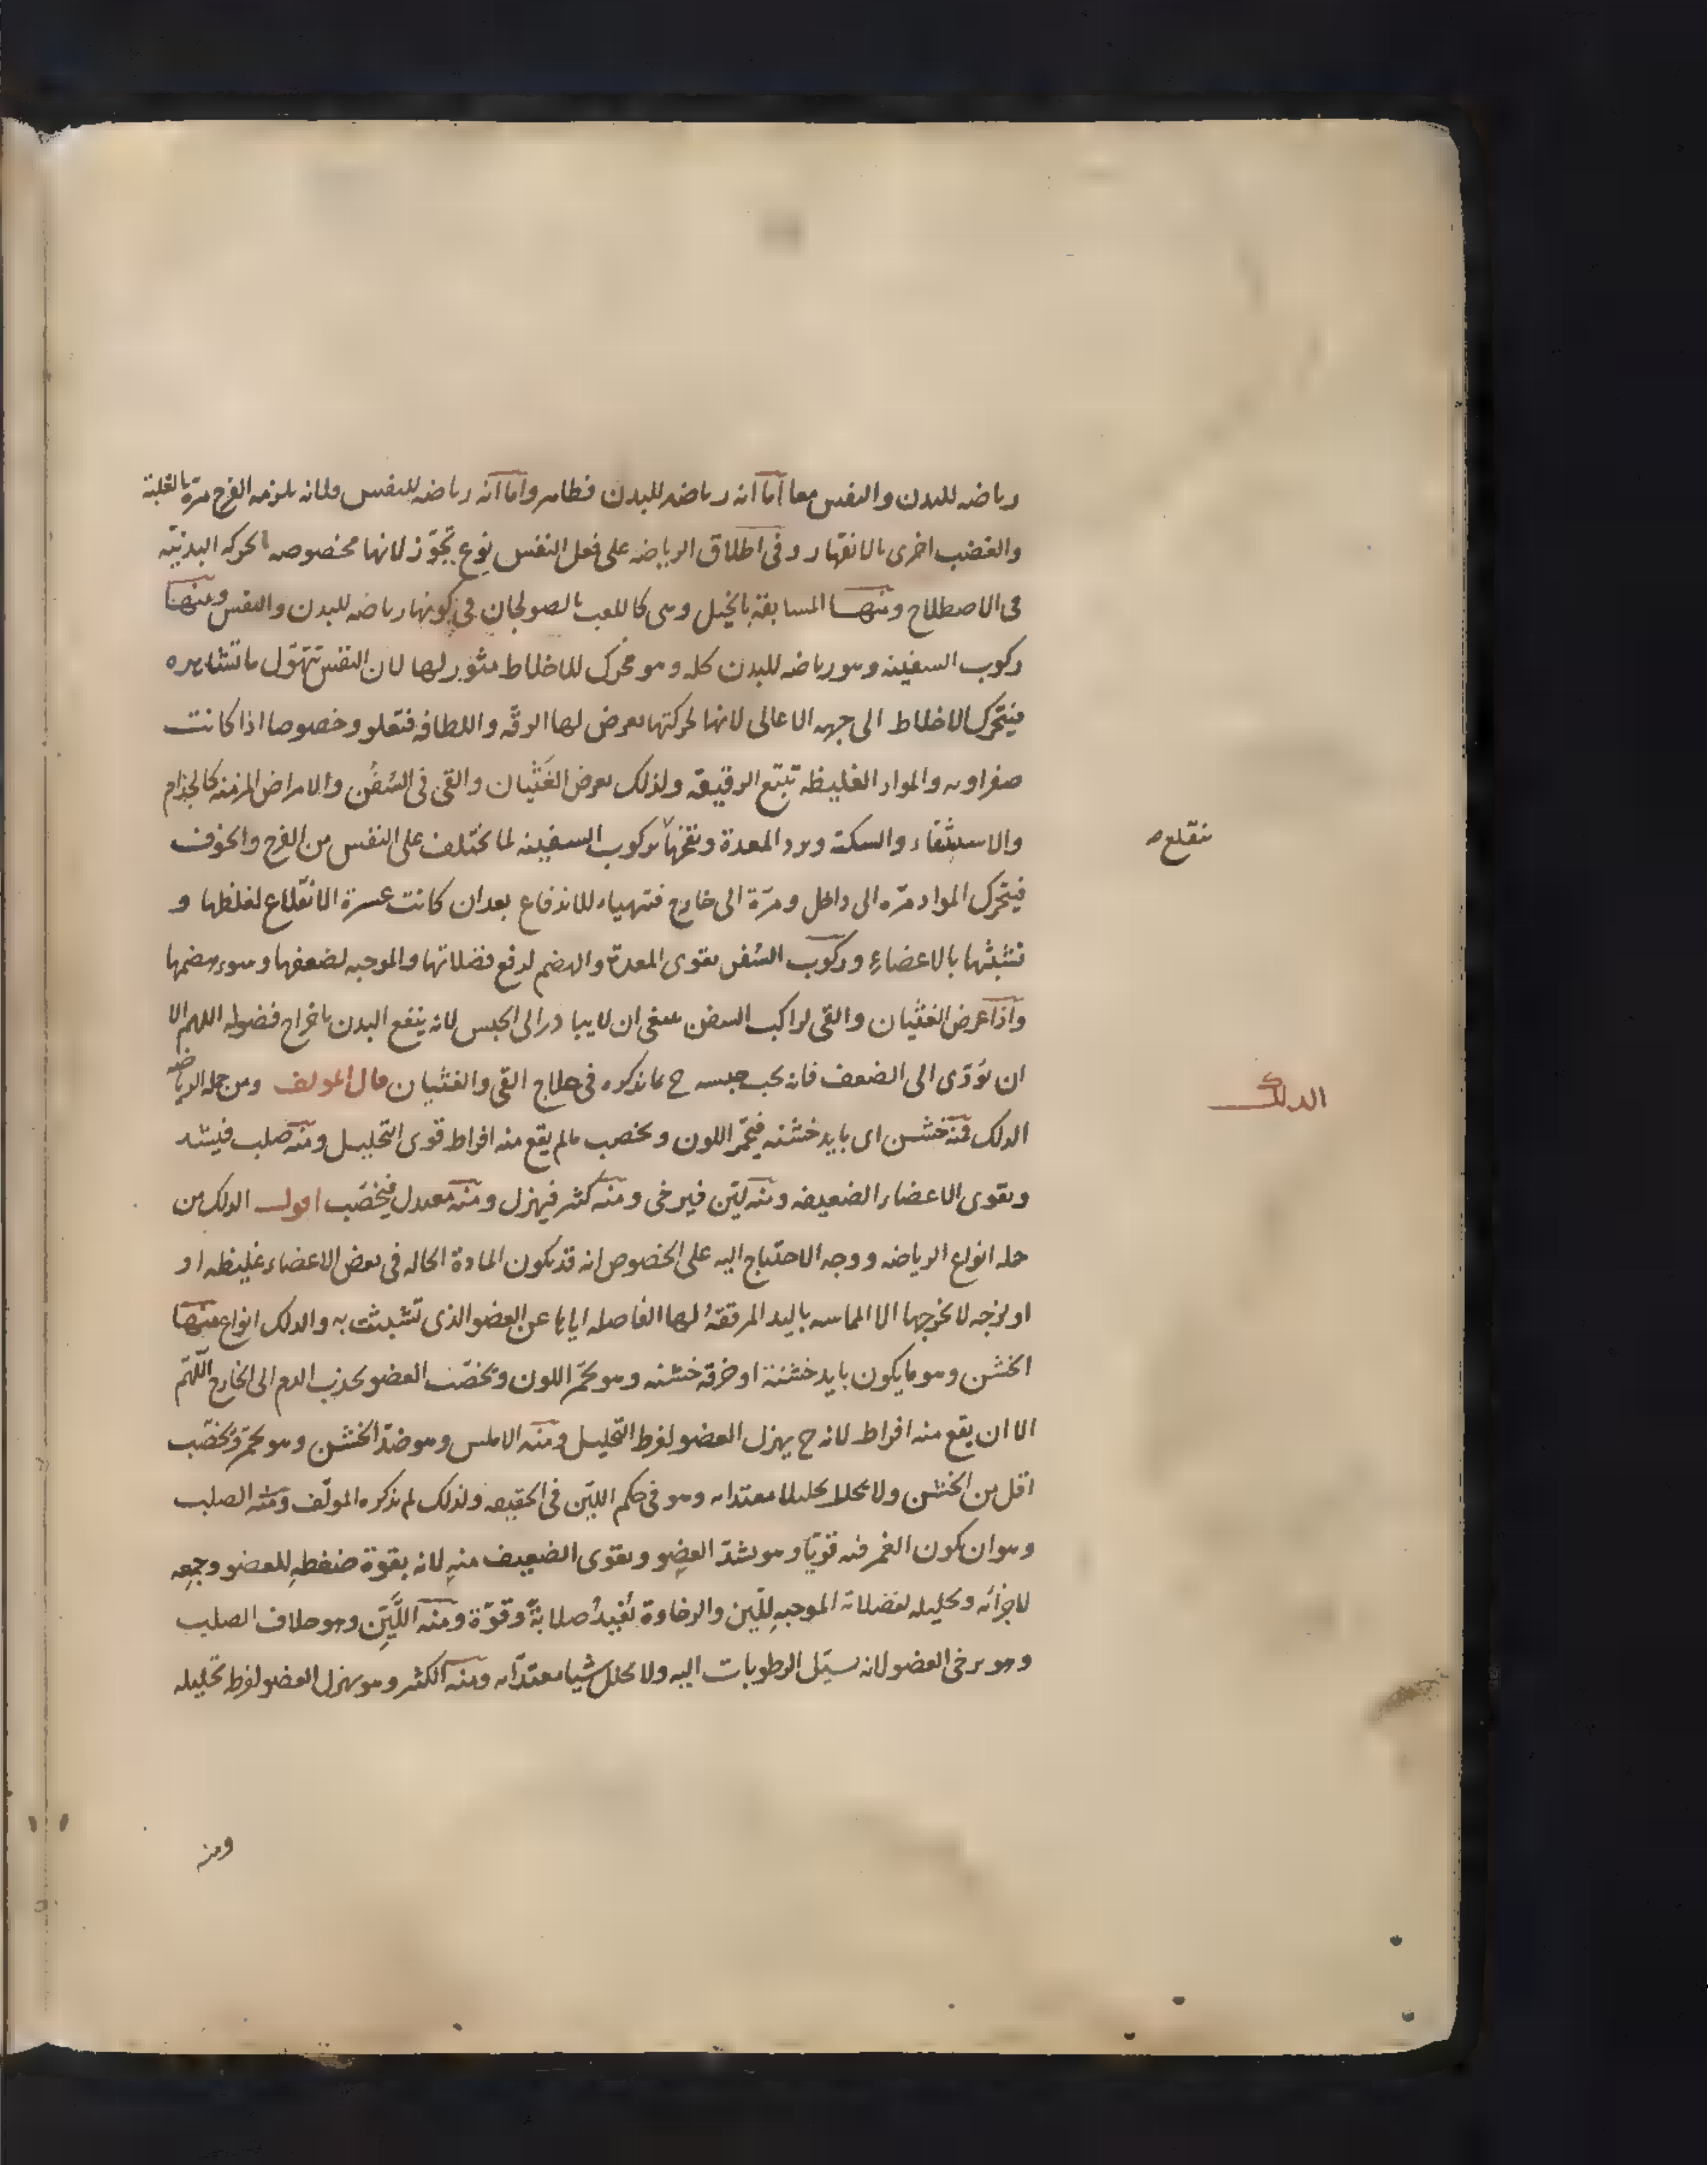 رياضه للبدن والنفس معا اما انه رياضه للبدن فظاهر واما انه رياضه للنفس فلانه يلزمه الفرح مرة بالغلبة
والغضب اخرى بالانقهار وفى اطلاق الرياضه على فعل النفس نوع تجوّز لانها مخصوصه بالحركه البدنيّه
فى الاصطلاح ومنها المسابقة بالخيل وهى كاللعب بالصولجان فى كونها رياضه للبدن والنفس ومنها
ركوب السفينه وهو رياضه للبدن كله وهو محرك للاخلاط مثور لها لان النفس تتهوّل ما تشاهده
فيتحرك الاخلاط الى جهه الاعالى لانها لحركتها يعرض لها الرقّه واللطافه فتعلو وخصوصا اذا كانت
صفراويه والمواد الغليظه تتبع الرقيقه ولذلك يعرض الغَثَيان والقى فى السُفُن والامراض المزمنه كالجذام
والاستسقاء والسكته وبرد المعدة ونفخها بركوب السفينه لما يختلف على النفس من الفرح والخوف
ينقلع صـ
فيتحرك المواد مرّه الى داخل ومرّة الى خارج فتهياء للاندفاع بعد ان كانت عسرة الانقلاع لغلظها و
تشبثها بالاعضاءِ وركوب السُفن يقوى المعدة والهضم لدفع فضلاتها والموجبه لضعفها وسوء هضمها
واذا عرض الغثيان والقى لراكب السفن ينبغى ان لا يبادر الى الحبس لانه ينفع البدن باخراج فضوله اللهم الا
ان يؤدّى الى الضعف فانه يجب حبسه ح بما نذكره فى علاج القى والغثيان قال المولف ومن جمله الرياضه
الدلك
الدلك فمنه خشن اى بايد خشنه فيحمّر اللون ويخصب مالم يقع منه افراط قوى التحليل ومنه صلب فيشد
ويقوى الاعضاء الضعيفه ومنه ليّن فيرخى ومنه كثير فيهزل ومنه معتدل فيخصّب اقول الدلك من
جمله انواع الرياضه ووجه الاحتياج اليه على الخصوص انه قد يكون المادة الحاله فى بعض الاعضاء غليظه او
او لزجه لا يخرجها الا المماسه باليد المرققهُ لها الفاصله اياها عن العضو الذى تشبثت به والدلك انواع منها
الخشن وهو ما يكون بايد خشنة او خرقه خشنه وهو يحمّر اللون ويخصّب العضو بجذب الدم الى الخارج اللّهمّ
الا ان يقع منه افراط لانه ح يهزل العضو لفرط التحليل ومنه الاملس وهو ضدّ الخشن وهو يحمّر ويخصّب
اقل من الخشن ولا يحلل تحليلا معتدا به وهو فى حكم الليّن فى الحقيقه ولذلك لم يذكره المولّف ومنه الصلب
وهو ان يكون الغمز فيه قويّا وهو يشدّ العضو ويقوى الضعيف منهِ لانه بقوّة ضغطهِ للعضو وجمعِه
لاجزائه وتحليله لفضلاته الموجبهِ لللّين والرخاوة تُفيدُ صلابةً وقوّة ومنه اللَّيِّن وهو خلاف الصلب
وهو يرخى العضو لانه يسيّل الرطوبات اليه ولا يحلل شيا معتدّا به ومنه الكثير وهو يهزل العضو لفرط تحليله
ومنه